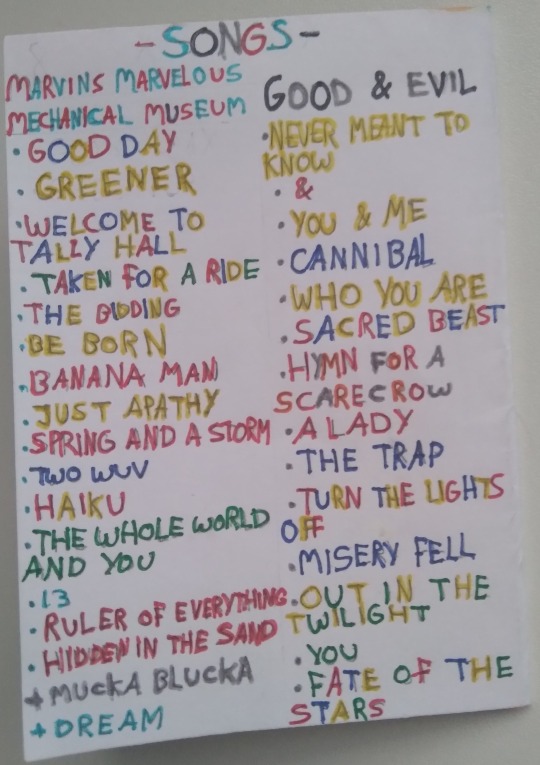 - SONGS -
MARVINS MARVELOUS
MECHANICAL MUSEUM
• GOOD DAY
• GREENER
• WELCOME TO
TALLY HALL
• TAKEN FOR A RIDE
• THE BIDDING
• BE BORN
• BANANA MAN
• JUST APATHY
• SPRING AND A STORM
• TWO WUV
• HAIKU
• THE WHOLE WORLD
AND YOU
• 13
• RULER OF EVERYTHING
• HIDDEN IN THE SAND
+ MUCKA BLUCKA
+ DREAM
GOOD & EVIL
• NEVER MEANT TO
KNOW
• &
• YOU & ME
• CANNIBAL
• WHO YOU ARE
• SACRED BEAST
• HYMN FOR A
SCARECROW
• A LADY
• THE TRAP
• TURN THE LIGHTS
OFF
• MISERY FELL
• OUT IN THE
TWILIGHT
• YOU
• FATE OF THE
STARS